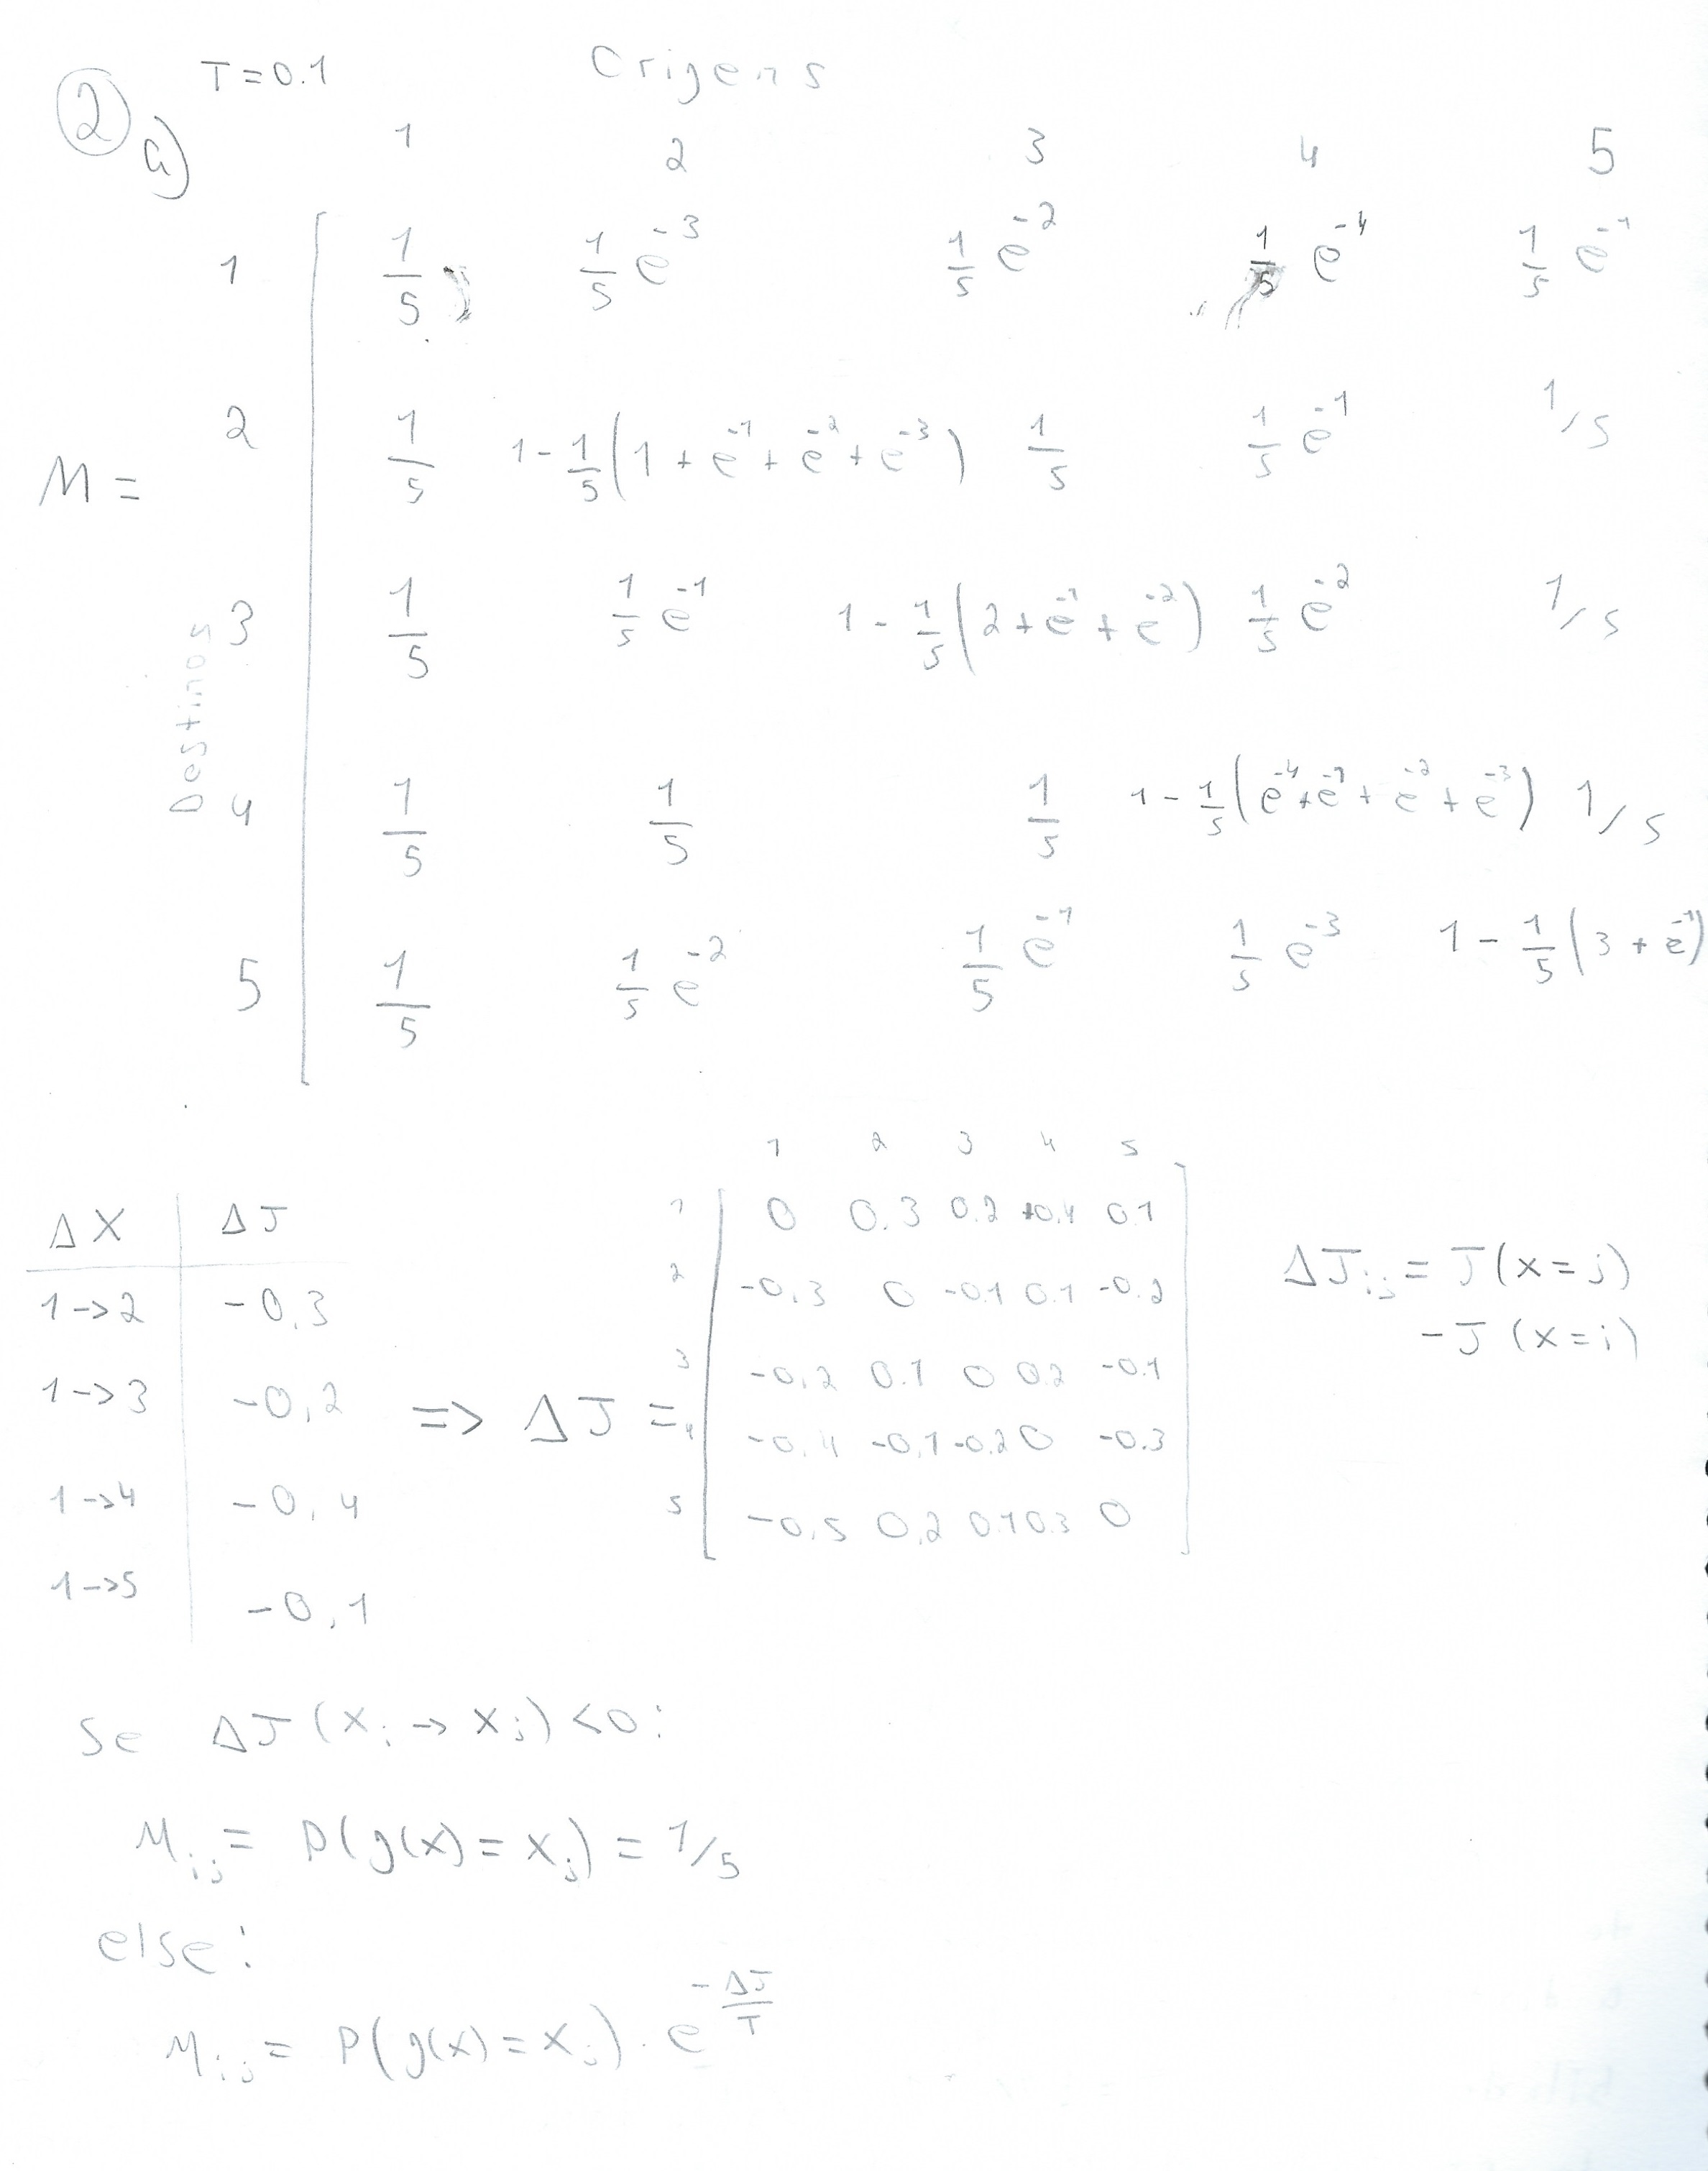 ② T=0.1 Origens
a) 1 2 3 4 5
1 1/5 1/5 e^-3 1/5 e^-2 1/5 e^-4 1/5 e^-1
2 1/5 1-1/5(1+e^-1+e^-2+e^-3) 1/5 1/5 e^-1 1/5
M =
3 1/5 1/5 e^-1 1-1/5(2+e^-1+e^-2) 1/5 e^-2 1/5
Destinos
4 1/5 1/5 1/5 1-1/5(e^-4+e^-1+e^-2+e^-3) 1/5
5 1/5 1/5 e^-2 1/5 e^-1 1/5 e^-3 1-1/5(3+e^-1)
ΔX ΔJ
1->2 -0,3
1->3 -0,2
1->4 -0,4
1->5 -0,1
=> ΔJ =
1 2 3 4 5
1 0 0.3 0.2 +0.4 0.1
2 -0.3 0 -0.1 0.1 -0.2
3 -0.2 0.1 0 0.2 -0.1
4 -0.4 -0.1 -0.2 0 -0.3
5 -0.5 0.2 0.1 0.3 0
ΔJij = J(x=j)
-J(x=i)
Se ΔJ(xi -> xj) <0:
Mij = P(g(x)=xj) = 1/5
else:
Mij = P(g(x)=xj) . e^-ΔJ/T